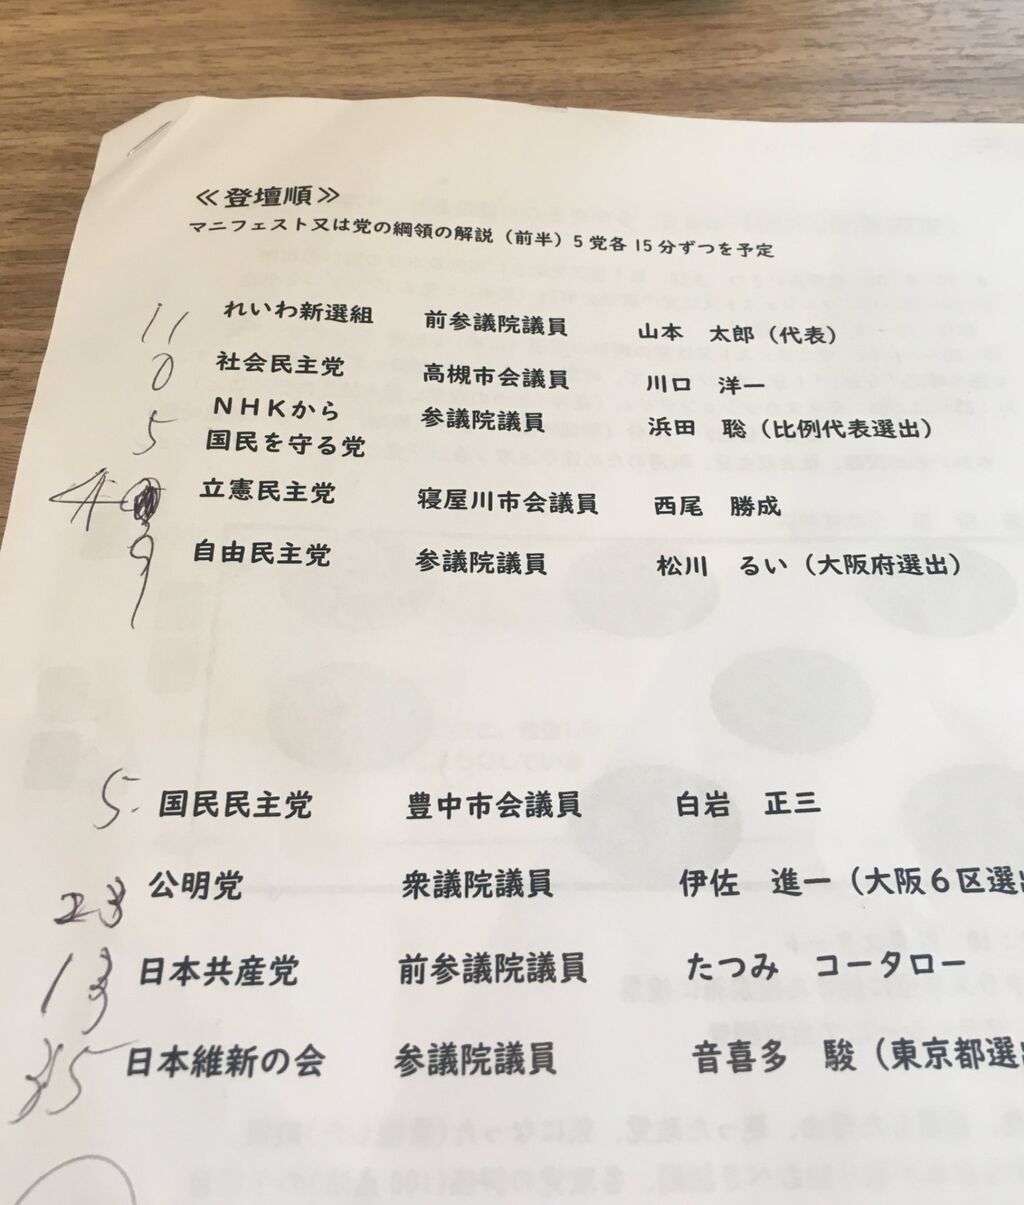 ≪登壇順≫
マニフェスト又は党の綱領の解説（前半）5党各15分ずつを予定
11 れいわ新選組 前参議院議員 山本 太郎（代表）
0 社会民主党 高槻市会議員 川口 洋一
5 NHKから 参議院議員 浜田 聡（比例代表選出）
国民を守る党
4 立憲民主党 寝屋川市会議員 西尾 勝成
9 自由民主党 参議院議員 松川 るい（大阪府選出）
5. 国民民主党 豊中市会議員 白岩 正三
23 公明党 衆議院議員 伊佐 進一（大阪6区選出
13 日本共産党 前参議院議員 たつみ コータロー
日本維新の会 参議院議員 音喜多 駿（東京都選出